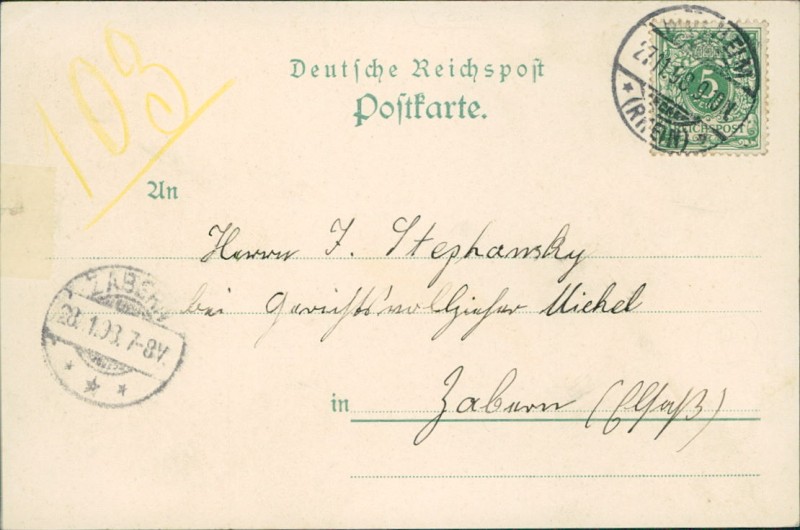 103
Deutsche Reichspost
Postkarte.
5
REICHSPOST
(RHEIN)
An
Herrn J. Stephansky
bei Gerichtsvollzieher Michel
ZABERN
28.1.98.7-8V.
in Zabern (Elsaß)